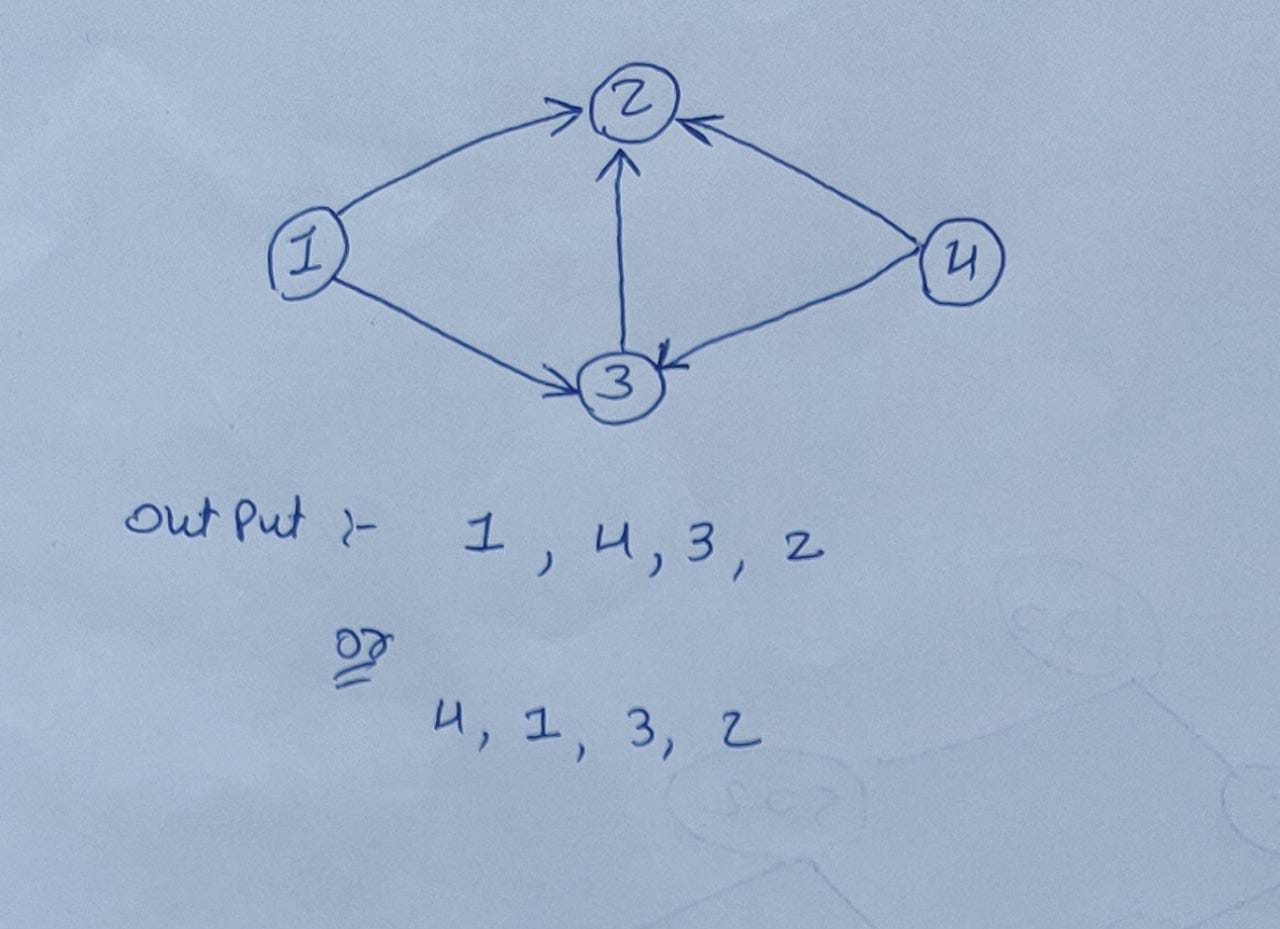 2
1
4
3
output :- 1, 4, 3, 2
or
4, 1, 3, 2